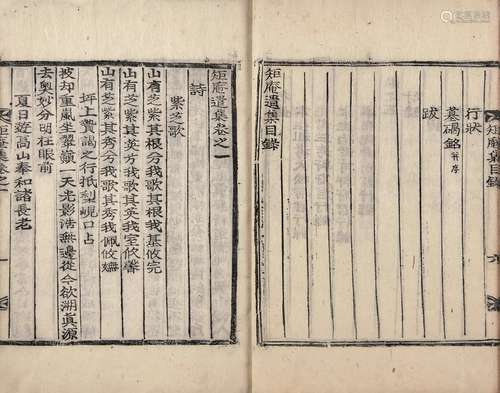 行狀
墓碣銘 并序
跋
矩庵遺集目錄
矩庵集目錄
矩庵遺集卷之一
詩
紫芝歌
山有芝紫其根兮我歌其根我基攸完
山有芝紫其英兮我歌其英我室攸馨
山有芝紫其秀兮我歌其秀我佩攸
坪上賛謁之行抵梨峴口占
披却重嵐坐翠嶺一天光影浩無邊從今欲溯眞源
去奧妙分明在眼前
夏日遊高山奉和諸長老
矩庵集卷之一